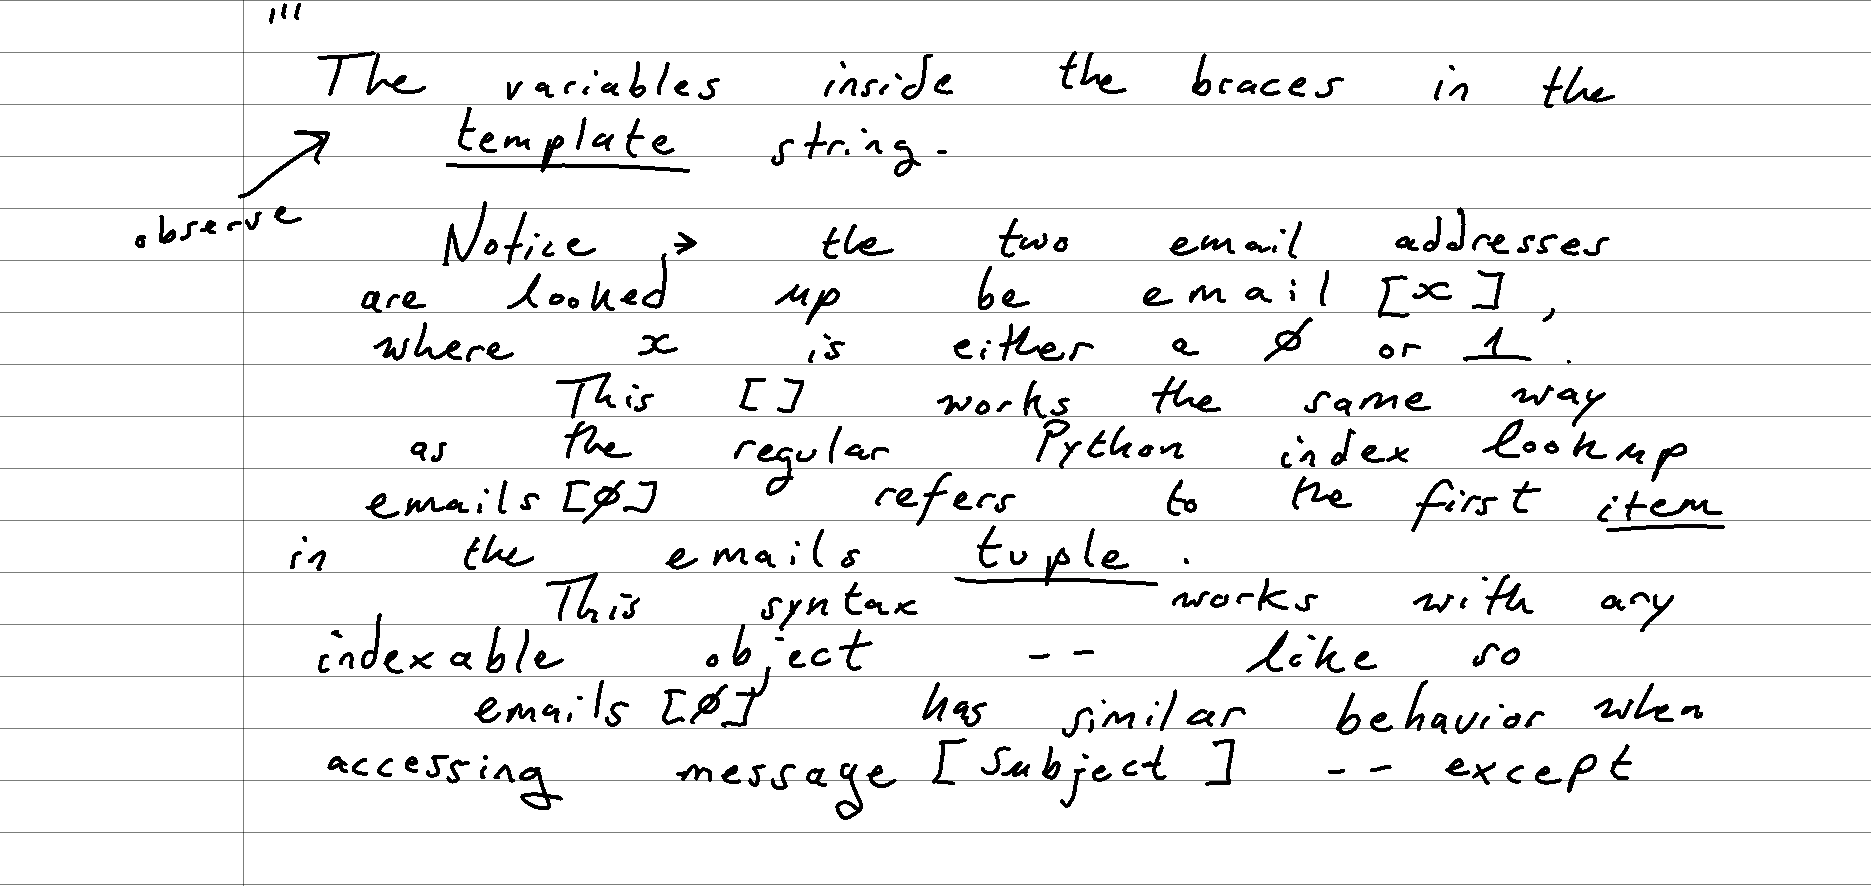 '''
The variables inside the braces in the
template string.
observe
Notice → the two email addresses
are looked up be email [x],
where x is either a 0 or 1.
This [] works the same way
as the regular Python index lookup
emails [0] refers to the first item
in the emails tuple.
This syntax works with any
indexable object -- like so
emails [0] has similar behavior when
accessing message [subject] -- except